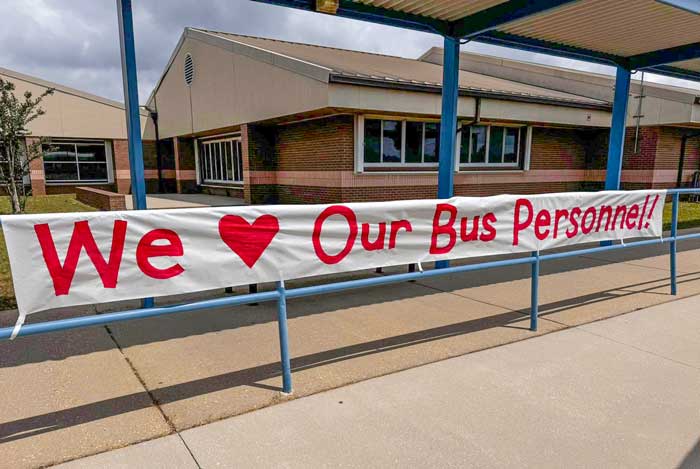 We ❤ Our Bus Personnel!